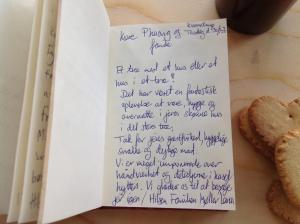 Kære
og
familie
Et træ med et hus eller et
hus i et træ?
Det har været en fantastisk
oplevelse at være, hygge og
overnatte i jeres skønne hus
i det store træ.
Tak for jeres gæstfrihed, hyggelige
snakke og dejlige mad.
Vi er meget imponerede over
håndværket og detaljerne i
hytten. Vi glæder os til at besøge
jer igen! Hilsen Familien Møller